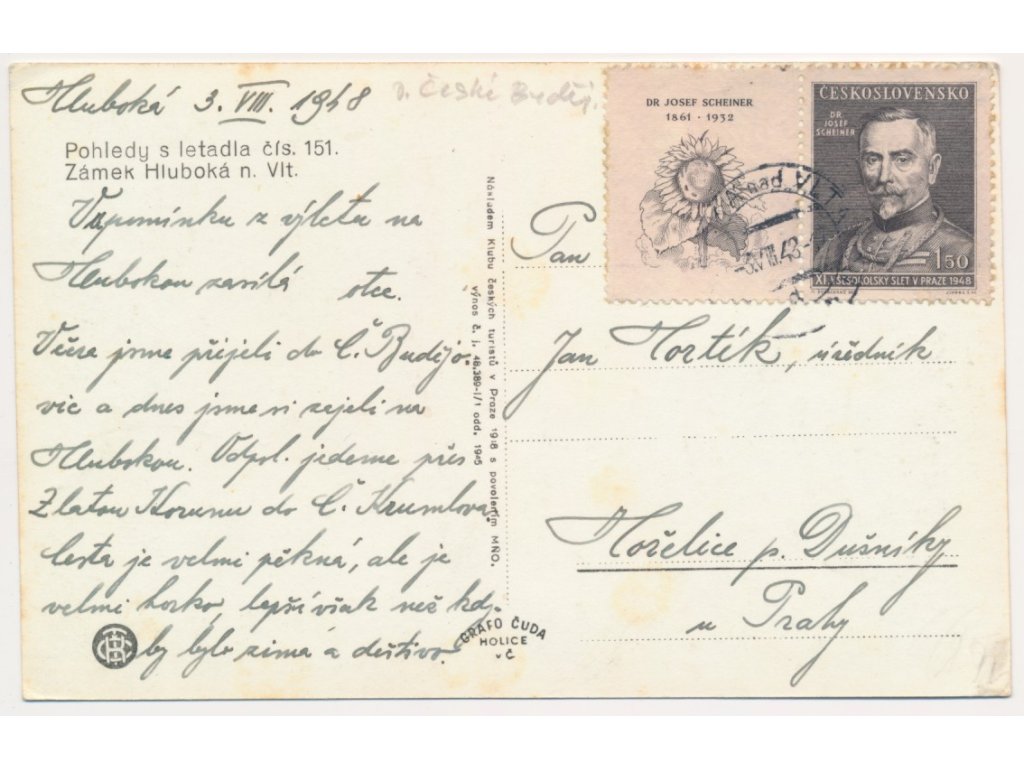 Hluboká 3. VIII. 1948
D. České Buděj.
Pohledy s letadla čís. 151.
Zámek Hluboká n. Vlt.
Vzpomínku z výletu na
Hlubokou zasílá otec.
Včera jsme přijeli do Č. Budějo-
vic a dnes jsme si zajeli na
Hlubokou. Odpol. jedeme přes
Zlatou Korunu do Č. Krumlova.
Cesta je velmi pěkná, ale je
velmi horko, lepší však než kdy-
by bylo zima a deštivo.
Nákladem Klubu českých turistů v Praze 1918 s povolením MNO.
výnos č. j. 46.389-I/1 odd. 1945
GRAFO ČUDA
HOLICE
v Č
DR JOSEF SCHEINER
1861 · 1932
ČESKOSLOVENSKO
DR.
JOSEF
SCHEINER
1·50
XI. VŠESOKOLSKÝ SLET V PRAZE 1948
nad VLT.
-3.VIII.48-
Pan
Jan Hortík, úředník
Hořelice p. Dušníky
u Prahy